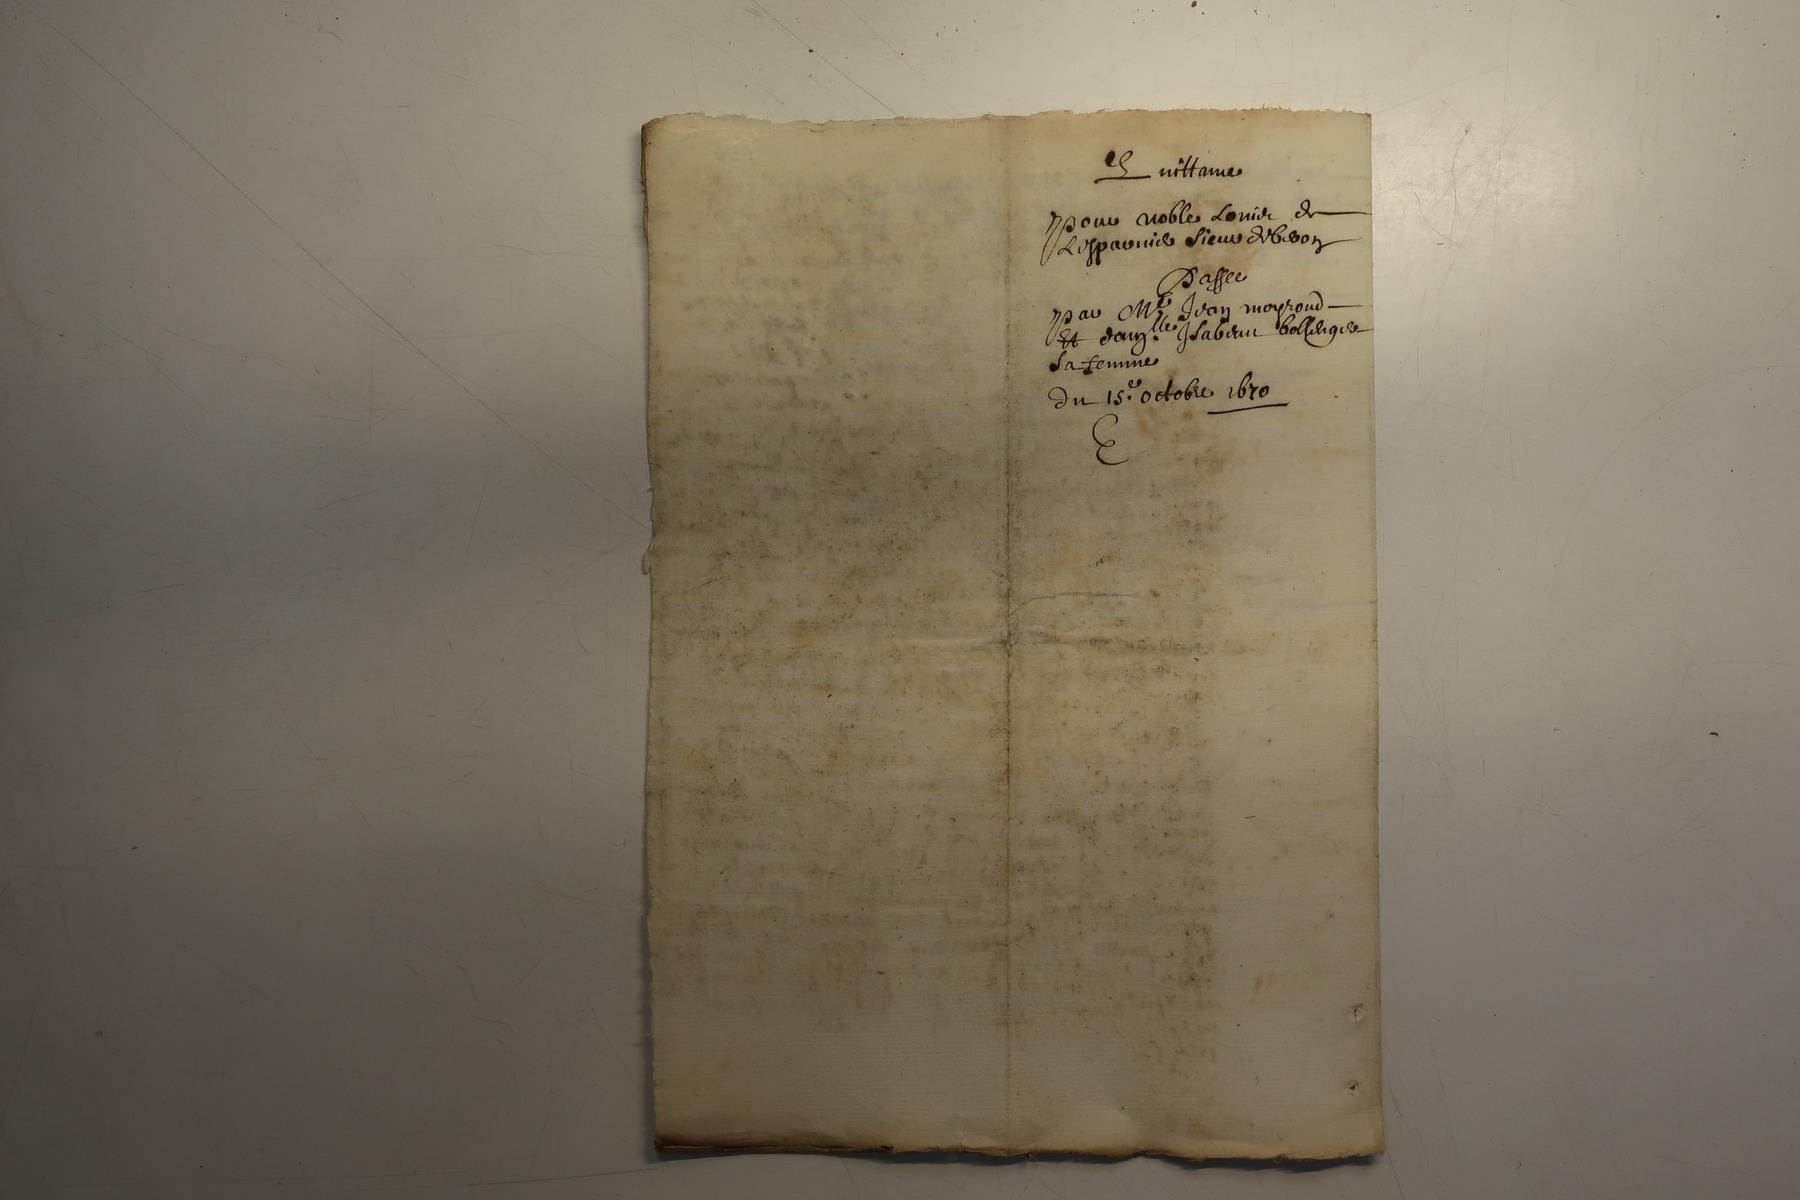 Quittance
Pour noble Louis de
Lesparuier Sieur
Passee
par Me Jean moyroud
Et damlle Isabeau
Sa femme
du 15e octobre 1670